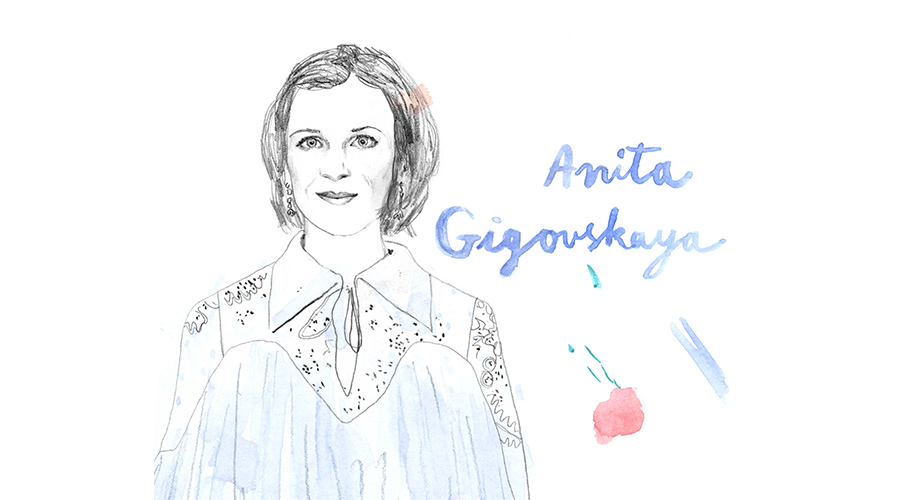 Anita
Gigovskaya